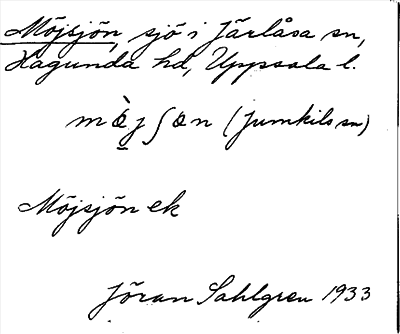 Möjsjön, sjö i Järlåsa sn,
Hagunda hd, Uppsala l.
mø̱̀jʃøn (Jumkils sn)
Möjsjön ek
Jöran Sahlgren 1933